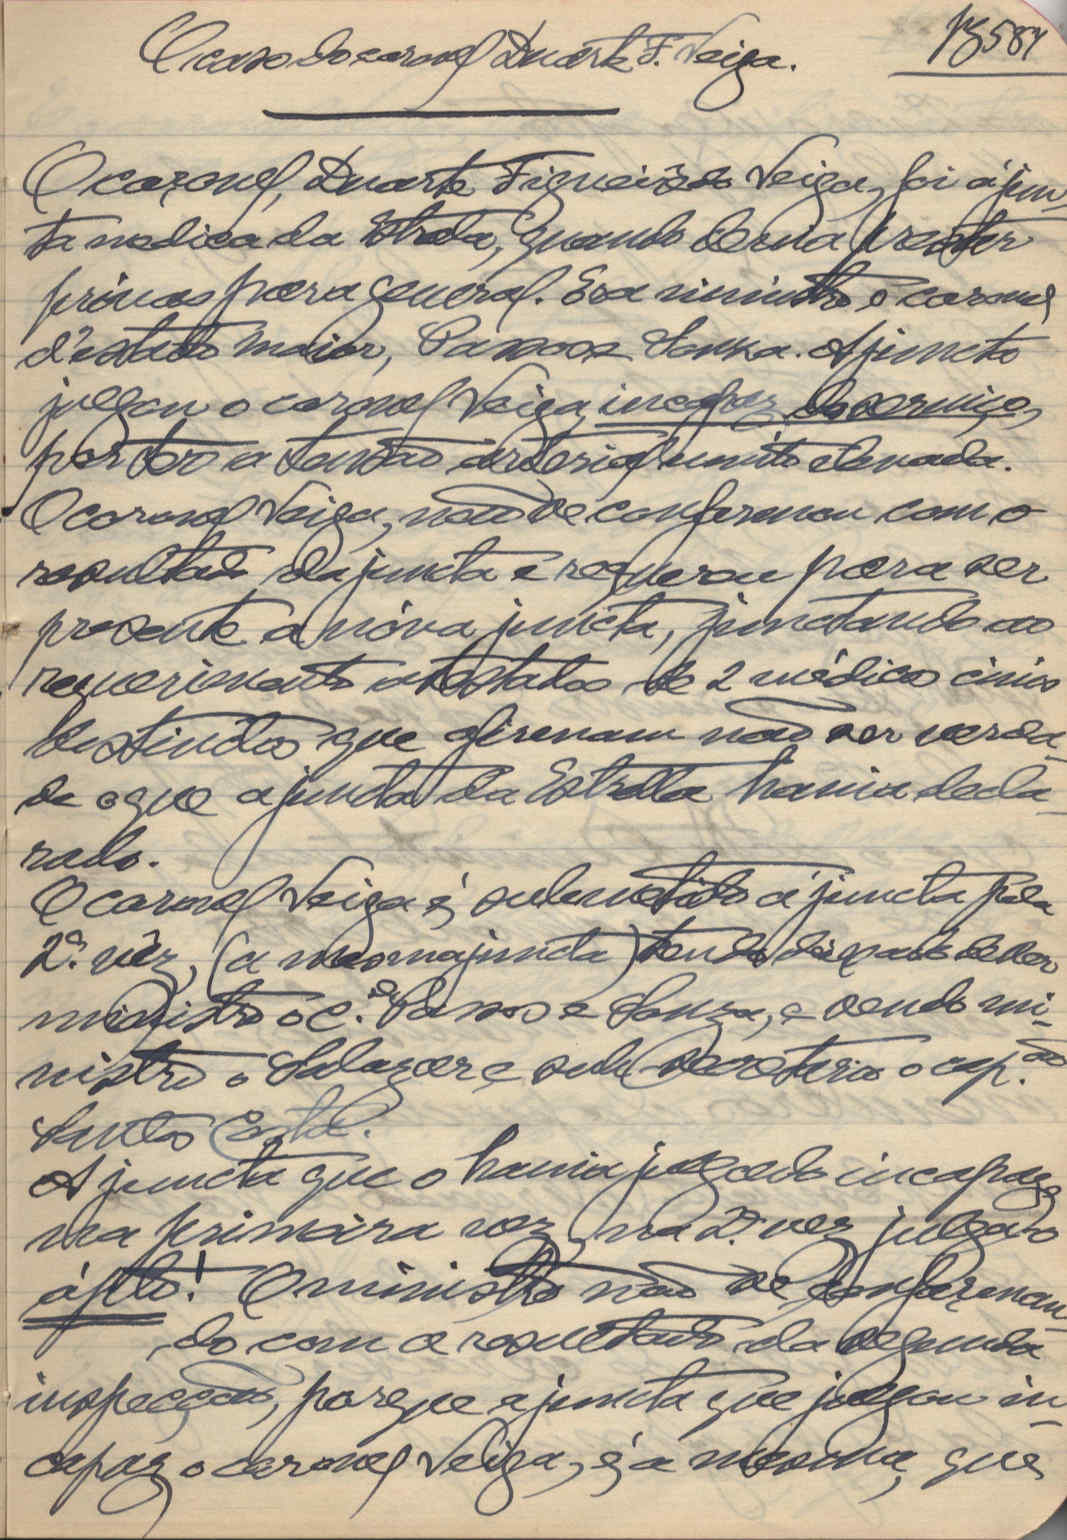 O caso do coronel Duarte F. Veiga.
584
O coronel, Duarte Figueirêdo Veiga, foi á jun-
ta medica da Estrela, quando devia prestar
próvas para general. Era ministro o coronel
d'estado maior, Passos e Sousa. A juncta
julgou o coronel Veiga, incapaz do serviço,
por ter a tensão arterial muito elevada.
O coronel Veiga, não se conformou com o
resultado da juncta e requereu para ser
presente a nóva juncta, junctando ao
requerimento atestados de 2 médicos civis
distinctos que afirmam não ser verda-
de o que a juncta da Estrella havia decla-
rado.
O coronel Veiga é, submetido á juncta pela
2ª. vêz, (a mesma juncta) tendo deixado de ser
ministro o C.el Passos e Sousa, e sendo mi-
nistro o Salazar e sub secretario o cap.ão
Santos Costa.
A juncta que o havia julgado incapaz
na primeira vez, na 2ª. vez julga-o
ápto! O ministro não se conforman-
do com o resultado da segunda
inspecção, porque a juncta que julgou in-
capaz o coronel Veiga, é, a mesma, que